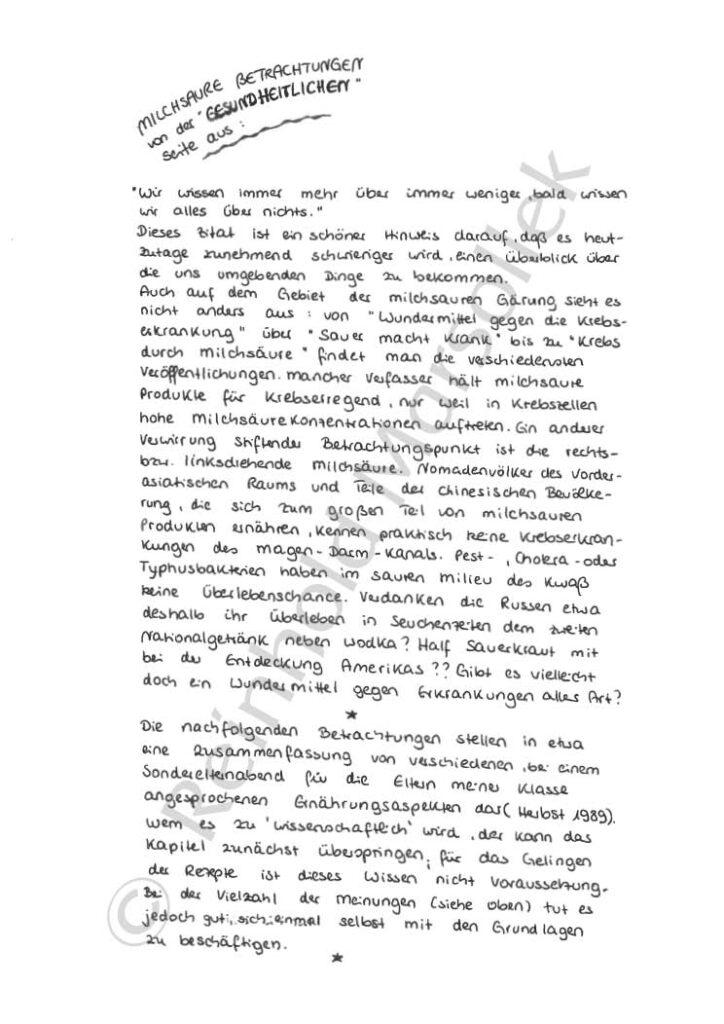 MILCHSAURE BETRACHTUNGEN
von der "GESUNDHEITLICHEN"
Seite aus:
"Wir wissen immer mehr über immer weniger, bald wissen
wir alles über nichts."
Dieses Zitat ist ein schöner Hinweis darauf, daß es heut-
zutage zunehmend schwieriger wird, einen Überblick über
die uns umgebenden Dinge zu bekommen.
Auch auf dem Gebiet der milchsauren Gärung sieht es
nicht anders aus: von "Wundermittel gegen die Krebs-
erkrankung" über "Sauer macht krank" bis zu "Krebs
durch Milchsäure" findet man die verschiedensten
Veröffentlichungen. Mancher Verfasser hält milchsaure
Produkte für Krebserregend, nur weil in Krebszellen
hohe Milchsäurekonzentrationen auftreten. Ein anderer
Verwirrung stiftender Betrachtungspunkt ist die rechts-
bzw. linksdrehende Milchsäure. Nomadenvölker des Vorder-
asiatischen Raums und Teile der chinesischen Bevölke-
rung, die sich zum großen Teil von milchsauren
Produkten ernähren, kennen praktisch keine Krebserkran-
kungen des Magen-Darm-Kanals. Pest-, Cholera-oder
Typhusbakterien haben im sauren Milieu des Kwaß
keine Überlebenschance. Verdanken die Russen etwa
deshalb ihr Überleben in Seuchenzeiten dem zweiten
Nationalgetränk neben Wodka? Half Sauerkraut mit
bei der Entdeckung Amerikas?? Gibt es vielleicht
doch ein Wundermittel gegen Erkrankungen aller Art?
*
Die nachfolgenden Betrachtungen stellen in etwa
eine Zusammenfassung von verschiedenen, bei einem
Sonderelternabend für die Eltern meiner Klasse
angesprochenen Ernährungsaspekten dar (Herbst 1989).
Wem es zu 'wissenschaftlich' wird, der kann das
Kapitel zunächst überspringen; für das Gelingen
der Rezepte ist dieses Wissen nicht Voraussetzung.
Bei der Vielzahl der Meinungen (siehe oben) tut es
jedoch gut, sich einmal selbst mit den Grundlagen
zu beschäftigen.
*
© Reinhold Marsollek